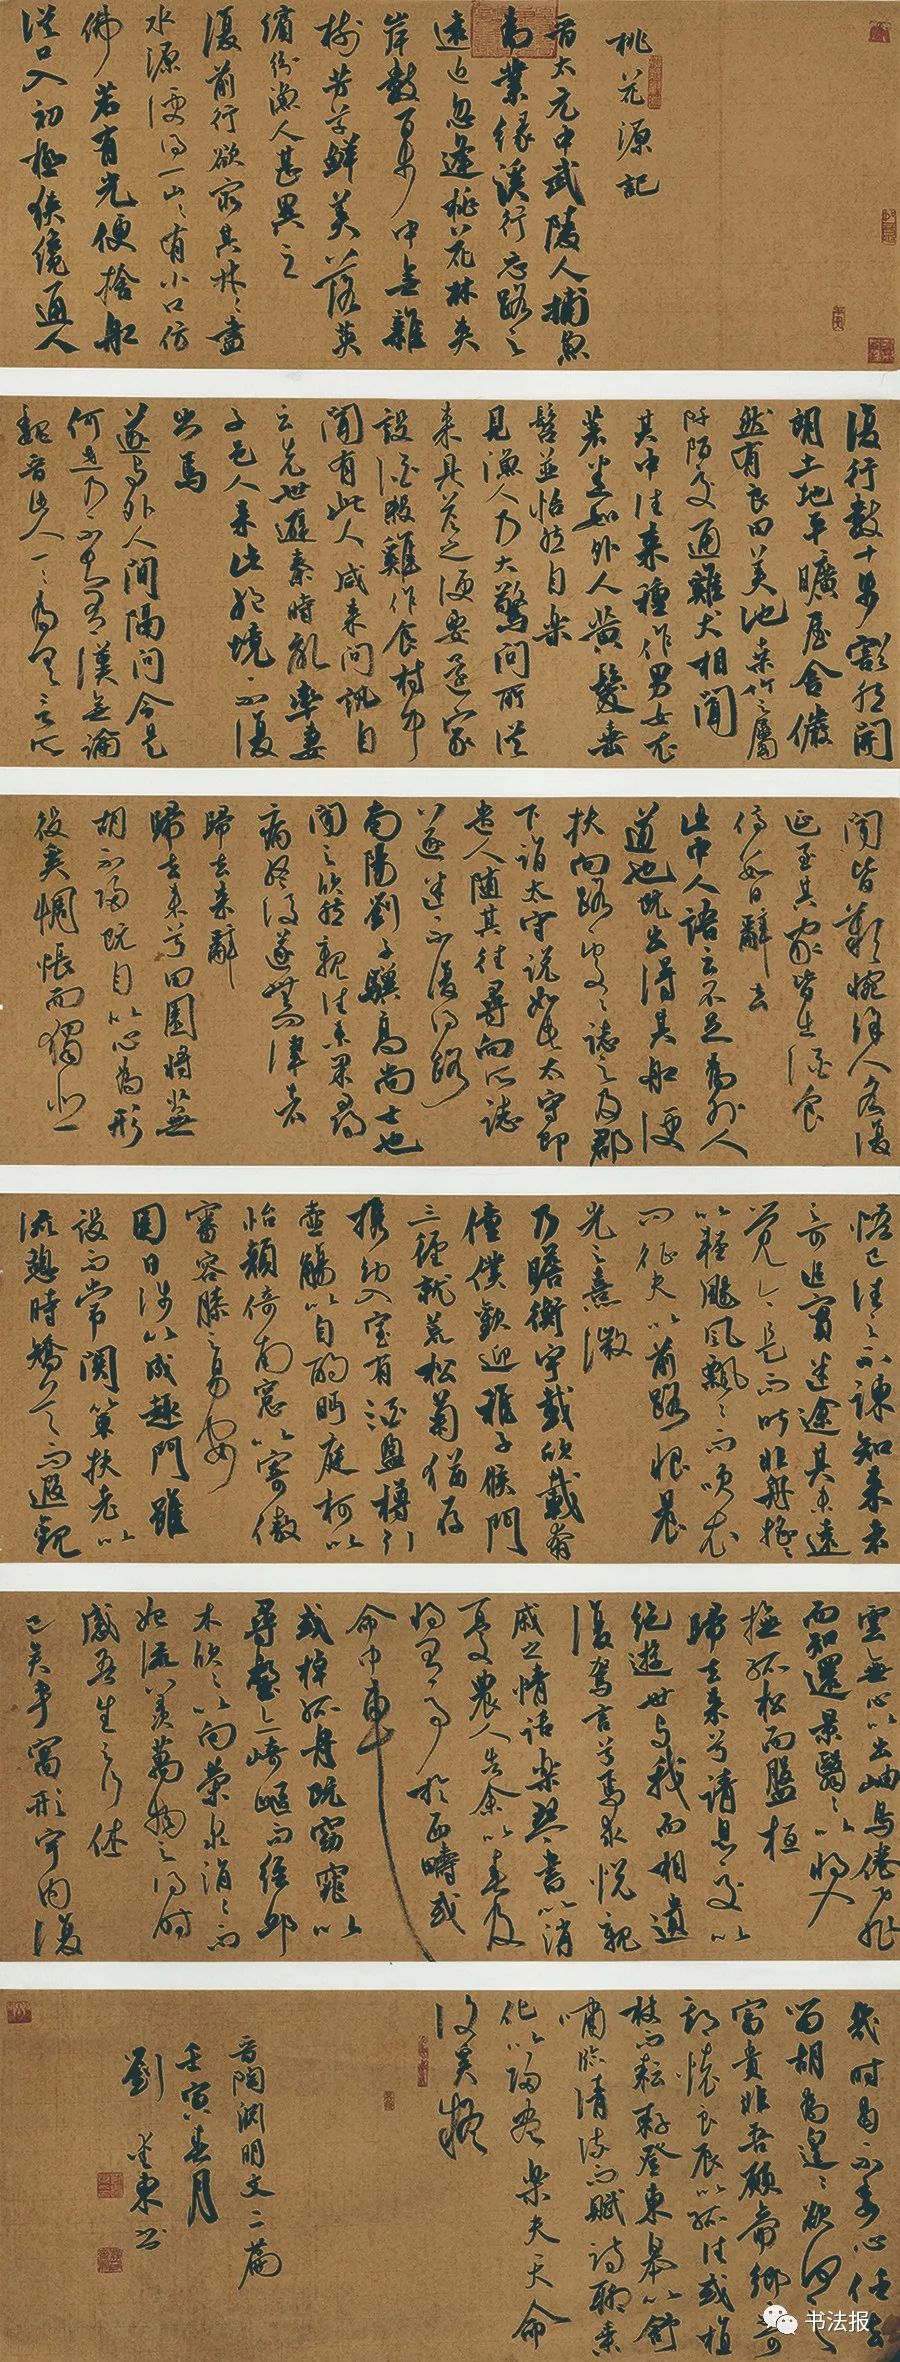 桃花源記
晉太元中武陵人捕魚
為業緣溪行忘路之
遠近忽逢桃花林夾
岸數百步中無雜
樹芳草鮮美落英
繽紛漁人甚異之
復前行欲窮其林〻盡
水源便得一山〻有小口仿
佛若有光便捨船
從口入初極狹纔通人
復行數十步豁然開
朗土地平曠屋舍儼
然有良田美池桑竹之屬
阡陌交通雞犬相聞
其中往來種作男女衣
著悉如外人黃髮垂
髫並怡然自樂
見漁人乃大驚問所從
來具答之便要還家
設酒殺雞作食村中
聞有此人咸來問訊自
云先世避秦時亂率妻
子邑人來此絕境不復
出焉
遂與外人間隔問今是
何世乃不知有漢無論
魏晉此人一〻為具言所
聞皆歎惋餘人各復
延至其家皆出酒食
停數日辭去
此中人語云不足為外人
道也既出得其船便
扶向路處〻誌之及郡
下詣太守説如此太守即
遣人隨其往尋向所誌
遂迷不復得路
南陽劉子驥高尚士也
聞之欣然親往未果尋
病終後遂無問津者
歸去來辭
歸去來兮田園將蕪
胡不歸既自以心為形
役奚惆悵而獨悲
悟已往之不諫知來者
之可追實迷途其未遠
覺今是而昨非舟搖〻
以輕颺風飄〻而吹衣
問征夫以前路恨晨
光之熹微
乃瞻衡宇載欣載奔
僮僕歡迎稚子候門
三徑就荒松菊猶存
攜幼入室有酒盈樽引
壺觴以自酌眄庭柯以
怡顏倚南窗以寄傲
審容膝之易安
園日涉以成趣門雖
設而常関策扶老以
流憩時矯首而遐觀
雲無心以出岫鳥倦飛
而知還景翳〻以將入
撫孤松而盤桓
歸去來兮請息交以
絕遊世與我而相遺
復駕言兮焉求悅親
戚之情話樂琴書以消
憂農人告余以春及
將有事於西疇或
命巾車
或棹孤舟既窈窕以
尋壑亦崎嶇而經邱
木欣〻以向榮泉涓〻而
始流羨萬物之得時
感吾生之行休
已矣乎寓形宇內復
幾時曷不委心任去
留胡為遑〻欲何之
富貴非吾願帝鄉不可
期懷良辰以孤往或植
杖而耘耔登東皋以舒
嘯臨清流而賦詩聊乘
化以歸盡樂夫天命
復奚疑
晉陶淵明文二篇
壬寅春月
劉 東書
书法报